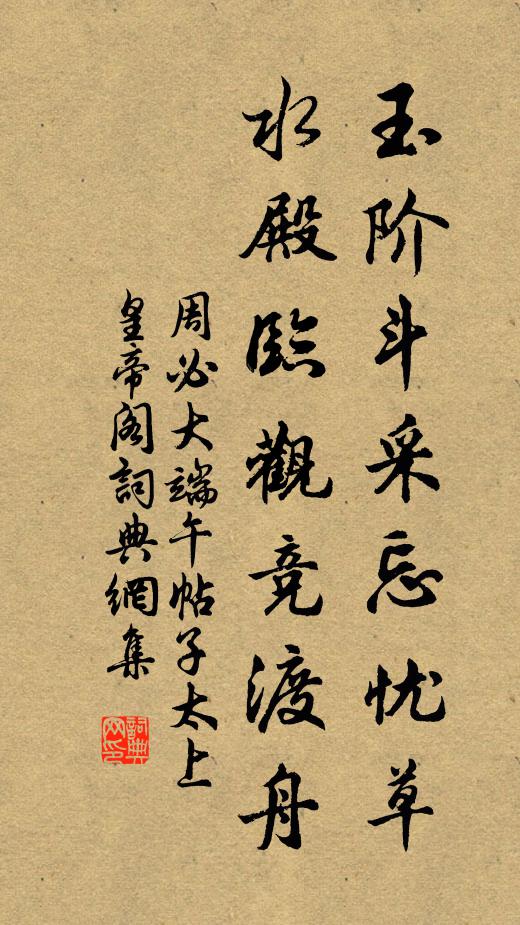 玉阶斗采忘忧草
水殿臨觀竞渡舟
周必大端午帖子太上
皇帝阁詞典網集
詞典网印